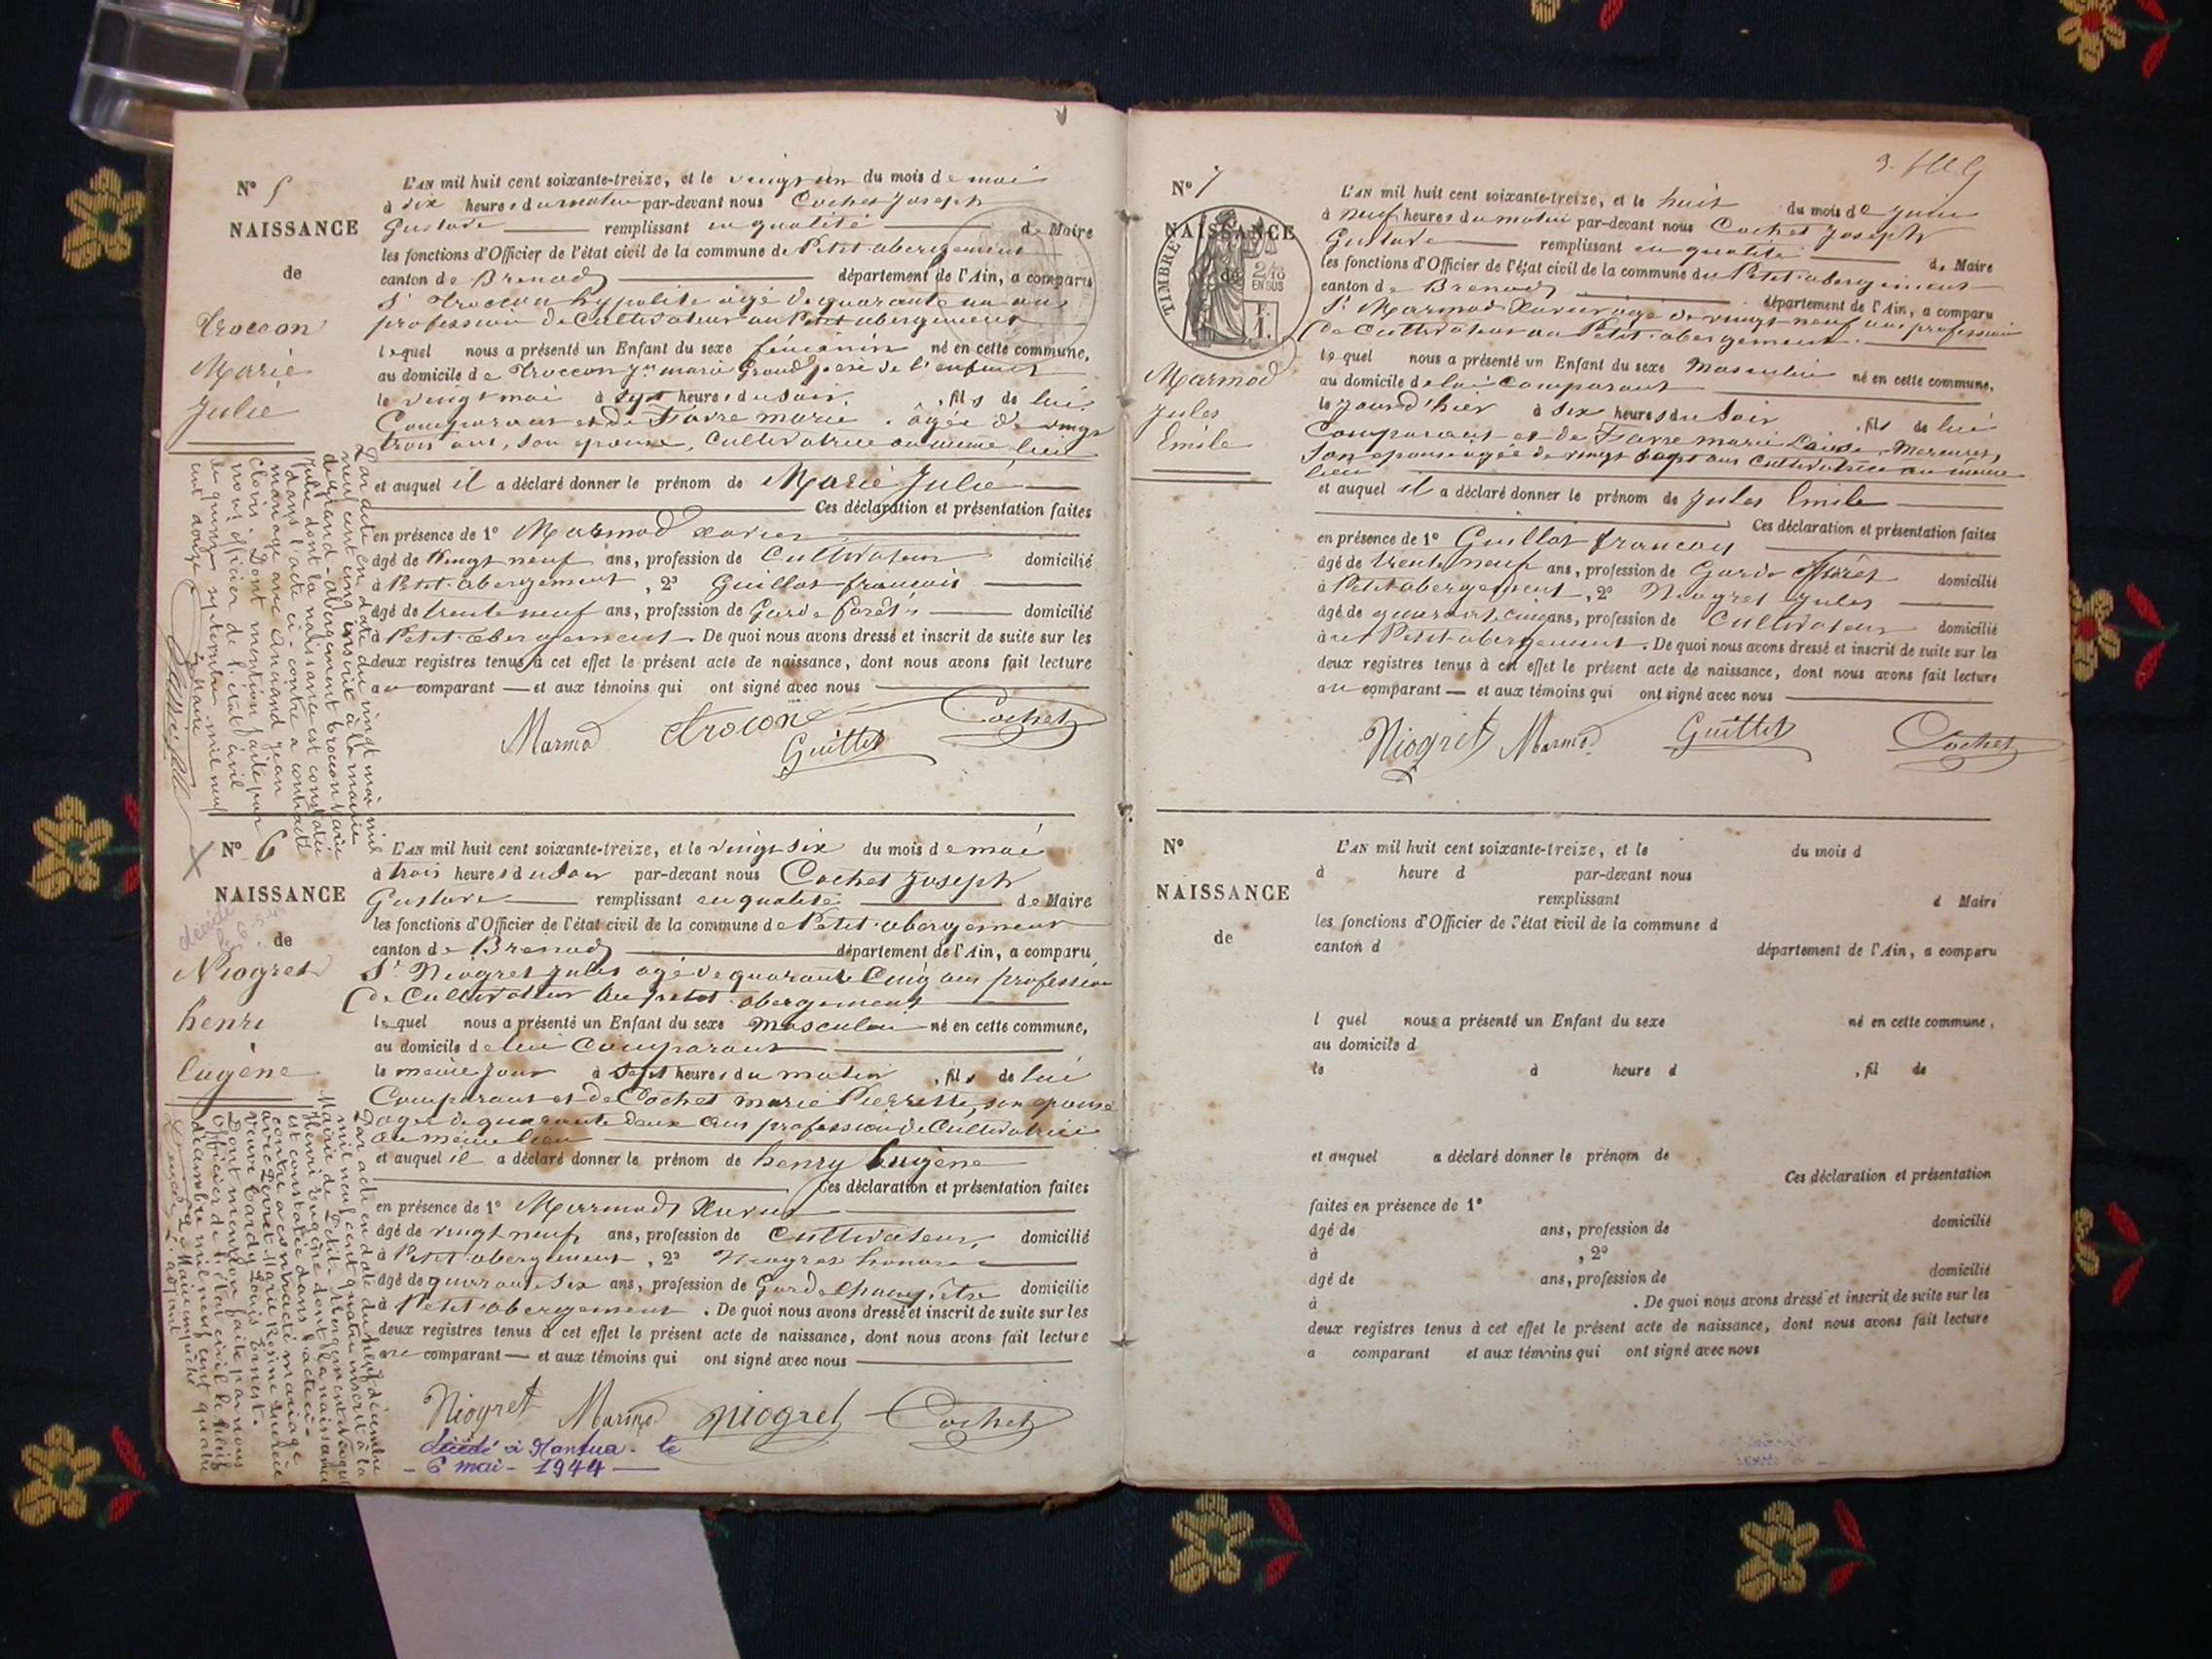 N° 5
NAISSANCE
de
Troccon
Marie
Julie
L'AN mil huit cent soixante-treize, et le vingt un du mois de mai
à dix heures du matin par-devant nous Cochet Joseph
Gustave remplissant en qualité de Maire
les fonctions d'Officier de l'état civil de la commune de Petit abergement
canton de Brenod département de l'Ain, a comparu
Sr Troccon hypolite agé de quarante un ans
profession de Cultivateur au Petit abergement
lequel nous a présenté un Enfant du sexe féminin né en cette commune,
au domicile de Troccon Jn marie Grand père de l'enfant
le vingt mai à sept heures du soir, fils de lui
Comparant et de Favre marie agée de vingt
trois ans, son epouse, Cultivatrice au meme lieu
et auquel il a déclaré donner le prénom de Marie Julie
Ces déclaration et présentation faites
en présence de 1° Marmod Xavier
âgé de Vingt neuf ans, profession de Cultivateur domicilié
à Petit abergement, 2° Guillot francois
âgé de trente neuf ans, profession de Garde forêts domicilié
à Petit abergement. De quoi nous avons dressé et inscrit de suite sur les
deux registres tenus à cet effet le présent acte de naissance, dont nous avons fait lecture
au comparant et aux témoins qui ont signé avec nous
Marmod Trocon Guillot Cochet
Par acte en date du vingt mai mil
neuf cent cinq inscrit à la mairie
du grand-abergement troccon Marie
Julie dont la naissance est constatée
dans l'acte ci-contre a contracté
mariage avec anciand jean
Clovis. Dont mention faite par
nous officier de l'état civil
le quinze septembre mil neuf
cent douze
Le Maire
N° 6
NAISSANCE
de
décédé
Niogret
henri
Eugène
L'AN mil huit cent soixante-treize, et le vingt six du mois de mai
à trois heures du soir par-devant nous Cochet Joseph
Gustave remplissant en qualité de Maire
les fonctions d'Officier de l'état civil de la commune de Petit abergement
canton de Brenod département de l'Ain, a comparu
Sr Niogret Jules agé de quarante cinq ans profession
de Cultivateur au petit abergement
lequel nous a présenté un Enfant du sexe masculin né en cette commune,
au domicile de lui Comparant
le meme jour à sept heures du matin, fils de lui
Comparant et de Cochet marie Pierrette, son epouse
agee de quarante deux ans profession de Cultivatrice
au même lieu
et auquel il a déclaré donner le prénom de henry Eugène
Ces déclaration et présentation faites
en présence de 1° Marmod Xavier
âgé de vingt neuf ans, profession de Cultivateur domicilié
à Petit abergement, 2° Niogret honoré
âgé de quarante six ans, profession de Garde Champêtre domicilié
à Petit abergement. De quoi nous avons dressé et inscrit de suite sur les
deux registres tenus à cet effet le présent acte de naissance, dont nous avons fait lecture
au comparant et aux témoins qui ont signé avec nous
Niogret Marmod Niogret Cochet
décédé à Nantua - le
- 6 mai - 1944 -
Par acte en date du neuf décembre
mil neuf cent quatre inscrit à la
Mairie de Petit-Abergement Niogret
Henri Eugène dont la naissance
est constatée dans l'acte ci-
contre a contracté mariage
avec Perret Marie Rosine Lucrèce
veuve Tardy Louis Ernest.
Dont mention faite par nous
Officier de l'état civil le
décembre mil neuf cent quatre
Le Maire empêché
L'adjoint
N° 7
NAISSANCE
de
TIMBRE
2/10
EN SUS
Marmod
Jules
Emile
L'AN mil huit cent soixante-treize, et le huit du mois de Juin
à neuf heures du matin par-devant nous Cochet Joseph
Gustave remplissant en qualité de Maire
les fonctions d'Officier de l'état civil de la commune du Petit abergement
canton de Brenod département de l'Ain, a comparu
Sr Marmod Xavier agé de vingt neuf ans profession
de Cultivateur au Petit abergement
lequel nous a présenté un Enfant du sexe Masculin né en cette commune,
au domicile de lui Comparant
le Jourd'hier à six heures du Soir, fils de lui
Comparant et de Favre marie Louise Mercurie,
Son epouse agée de vingt sept ans Cultivatrice au meme
lieu
et auquel il a déclaré donner le prénom de Jules Emile
Ces déclaration et présentation faites
en présence de 1° Guillot francois
âgé de trente neuf ans, profession de Garde fôrêt domicilié
à Petit abergement, 2° Niogret Jules
âgé de quarante cinq ans, profession de Cultivateur domicilié
à au Petit abergement. De quoi nous avons dressé et inscrit de suite sur les
deux registres tenus à cet effet le présent acte de naissance, dont nous avons fait lecture
au comparant et aux témoins qui ont signé avec nous
Niogret Marmod Guillot Cochet
N°
NAISSANCE
de
L'AN mil huit cent soixante-treize, et le du mois d
à heure d par-devant nous
remplissant d Maire
les fonctions d'Officier de l'état civil de la commune d
canton d département de l'Ain, a comparu
l quel nous a présenté un Enfant du sexe né en cette commune,
au domicile d
le à heure d , fil de
et auquel a déclaré donner le prénom de
Ces déclaration et présentation
faites en présence de 1°
âgé de ans, profession de domicilié
à , 2°
âgé de ans, profession de domicilié
à . De quoi nous avons dressé et inscrit de suite sur les
deux registres tenus à cet effet le présent acte de naissance, dont nous avons fait lecture
a comparant et aux témoins qui ont signé avec nous